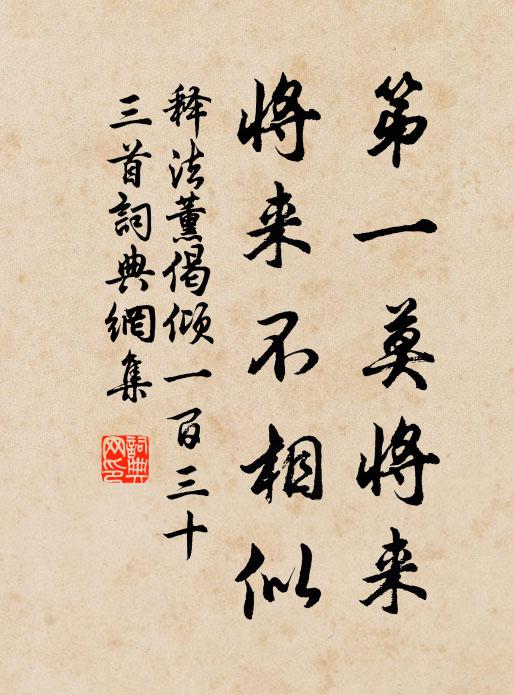 第一莫将来
将来不相似
释法薰偈倾一百三十
三首詞典網集
詞典
网印